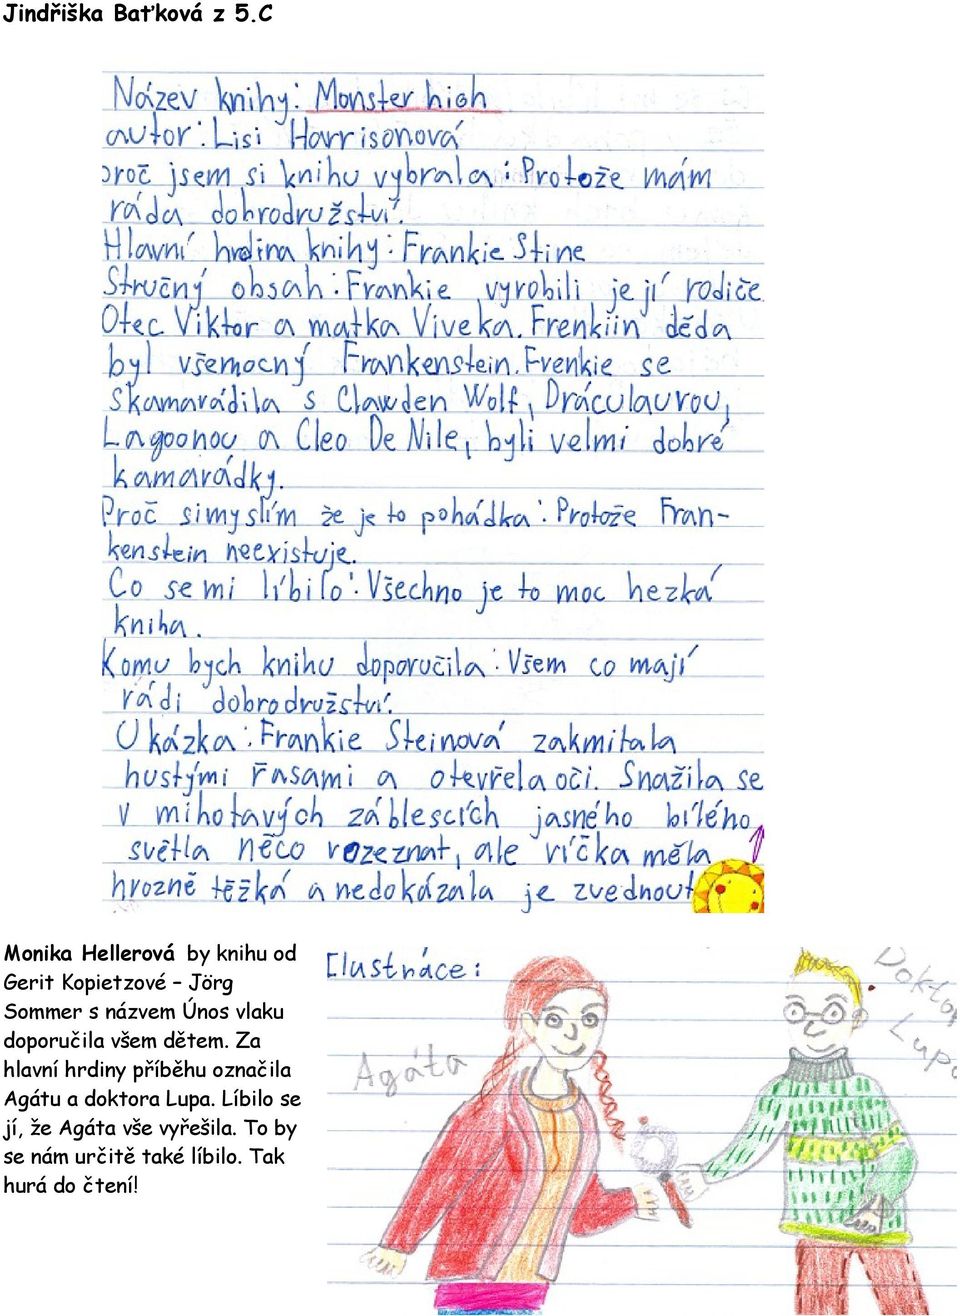 Jindřiška Baťková z 5.C
Název knihy: Monster high
autor: Lisi Harrisonová
proč jsem si knihu vybrala: Protože mám
ráda dobrodružství.
Hlavní hrdina knihy: Frankie Stine
Stručný obsah: Frankie vyrobili její rodiče
Otec Viktor a matka Viveka. Frenkiin děda
byl všemocný Frankenstein. Frenkie se
skamarádila s Clawden Wolf, Dráculaurou,
Lagoonou a Cleo De Nile, byli velmi dobré
kamarádky.
Proč simyslím že je to pohádka: Protože Fran-
kenstein neexistuje.
Co se mi líbilo: Všechno je to moc hezká
kniha.
Komu bych knihu doporučila: Všem co mají
rádi dobrodružství.
Ukázka: Frankie Steinová zakmitala
hustými řasami a otevřela oči. Snažila se
v mihotavých záblescích jasného bílého
světla něco rozeznat, ale víčka měla
hrozně těžká a nedokázala je zvednout
Monika Hellerová by knihu od
Gerit Kopietzové – Jörg
Sommer s názvem Únos vlaku
doporučila všem dětem. Za
hlavní hrdiny příběhu označila
Agátu a doktora Lupa. Líbilo se
jí, že Agáta vše vyřešila. To by
se nám určitě také líbilo. Tak
hurá do čtení!
Ilustrace:
Agáta
Doktor
Lupa